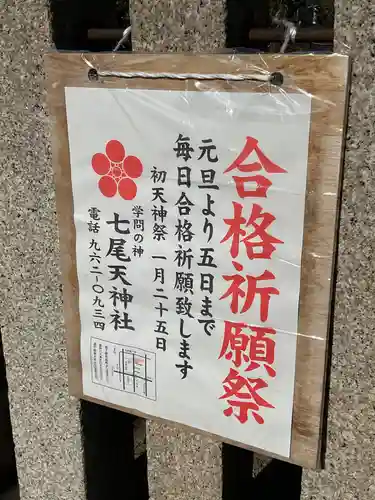 合格祈願祭
元旦より五日まで
毎日合格祈願致します
初天神祭 一月二十五日
学問の神
七尾天神社
電話 九六二-〇九三四